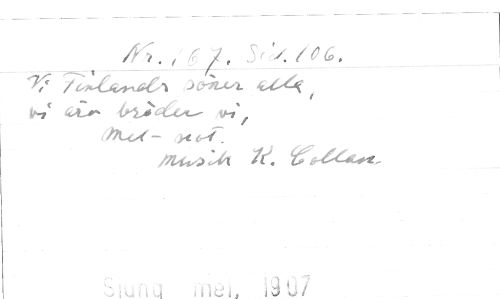 Nr. 167. Sid. 106.
Vi Finlands söner alla,
vi äro bröder vi,
Mel- not.
Musik K. Collan
Sjung mej, 1907